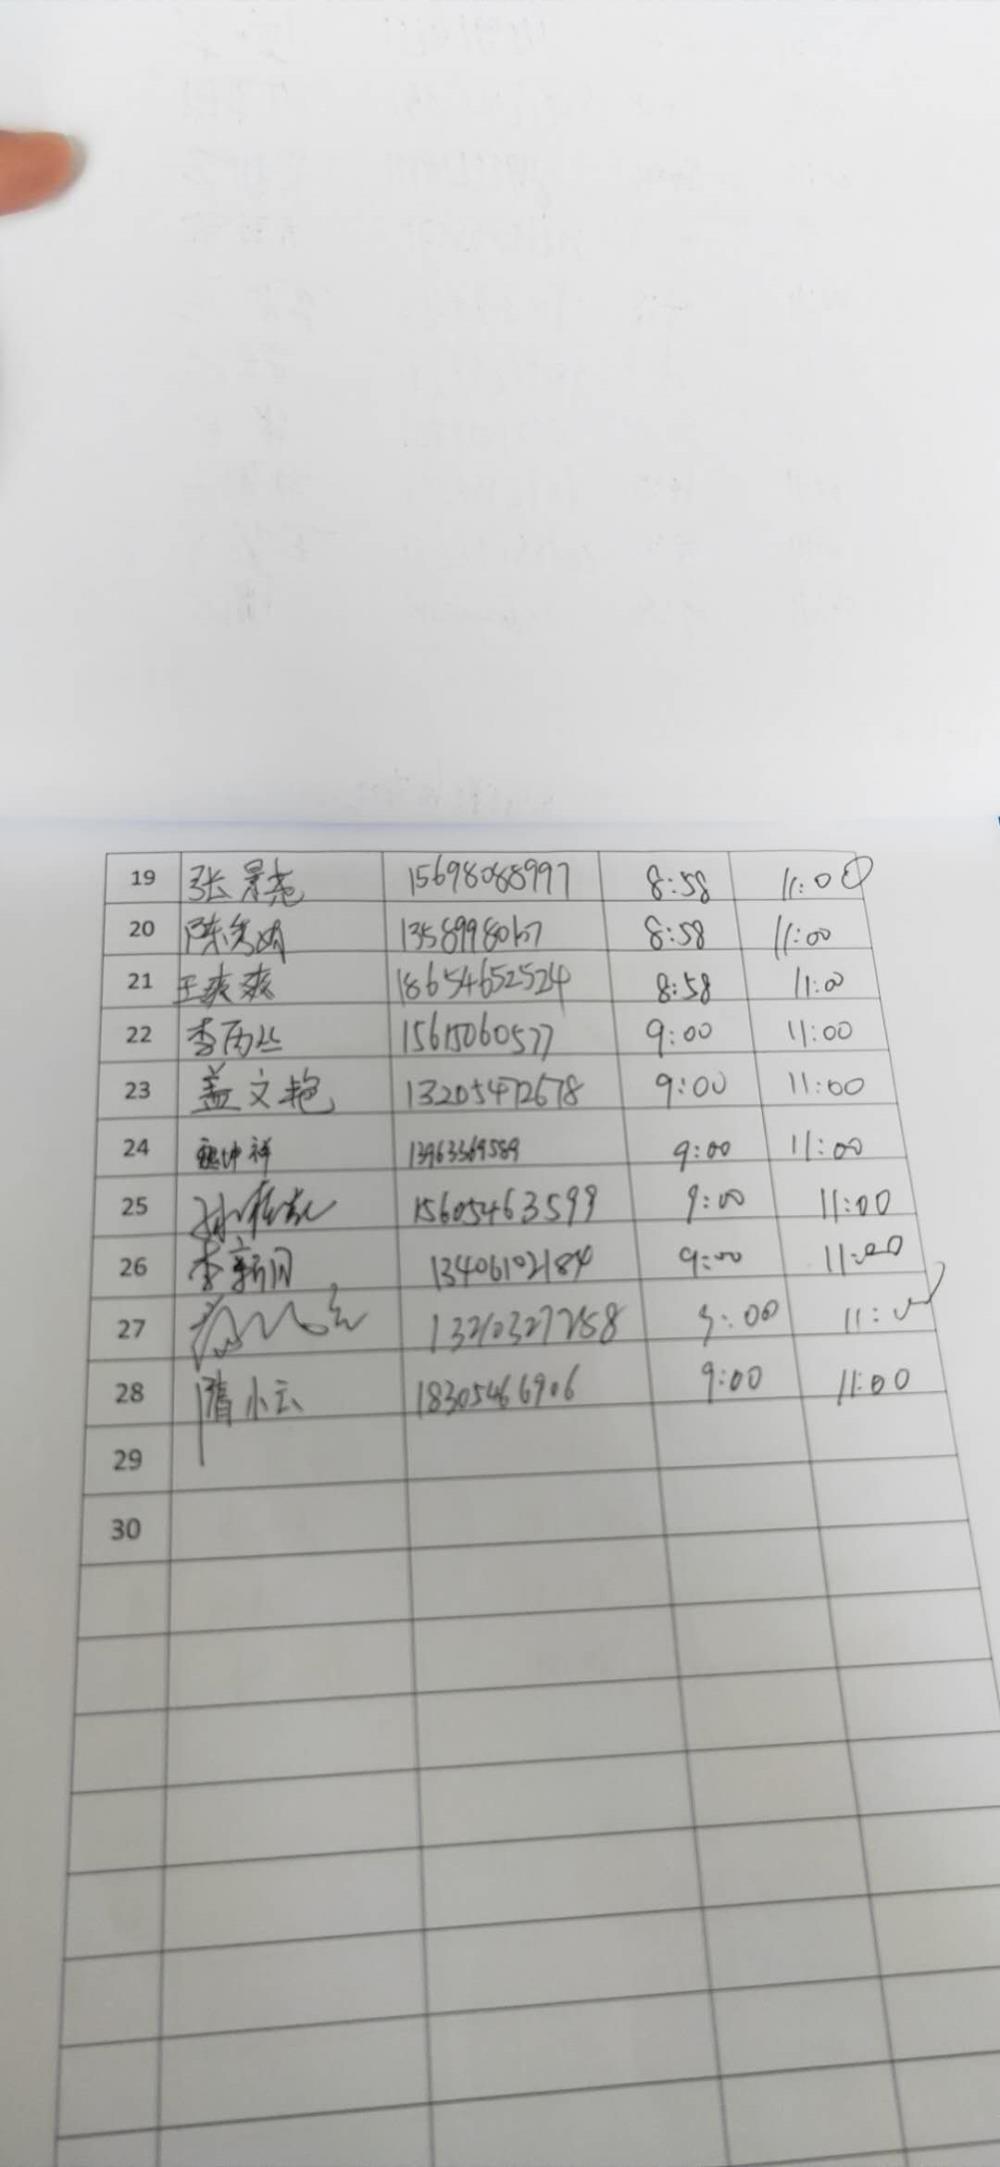 19 张景尧 15698088997 8:58 11:00
20 陈秀娟 13589980167 8:58 11:00
21 王爽爽 18654652524 8:58 11:00
22 李丙丛 15615060577 9:00 11:00
23 盖文艳 13205472678 9:00 11:00
24 魏坤祥 13963369589 9:00 11:00
25 孙 15605463599 9:00 11:00
26 李新闻 13406102184 9:00 11:00
27 13210327258 9:00 11:00
28 隋小云 18305466906 9:00 11:00
29
30